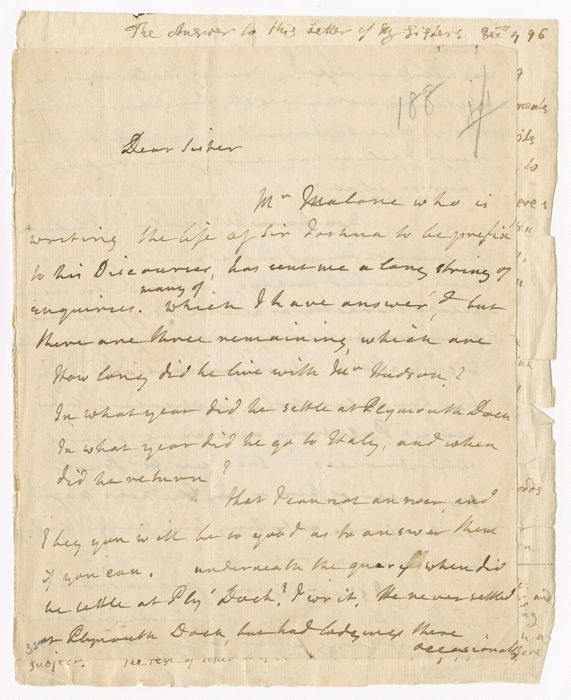 The Answer to this Letter of My Sisters Decr 4 96
188
Dear Sister
Mr Malone who is
writing the life of Sir Joshua to be prefix'd
to his Discourses, has sent me a long string of
many of
enquiries. which I have answer'd, but
there are three remaining, which are
How long did he live with Mr Hudson?
In what year did he settle at Plymouth Dock
In what year did he go to Italy, and when
did he return?
that I can not answer, and
I beg you will be so good as to answer them
if you can. underneath the query when did
he settle at Ply Dock? I writ, He never settled
at Plymouth Dock, but had lodgings there
occasionally
subject. the rest of